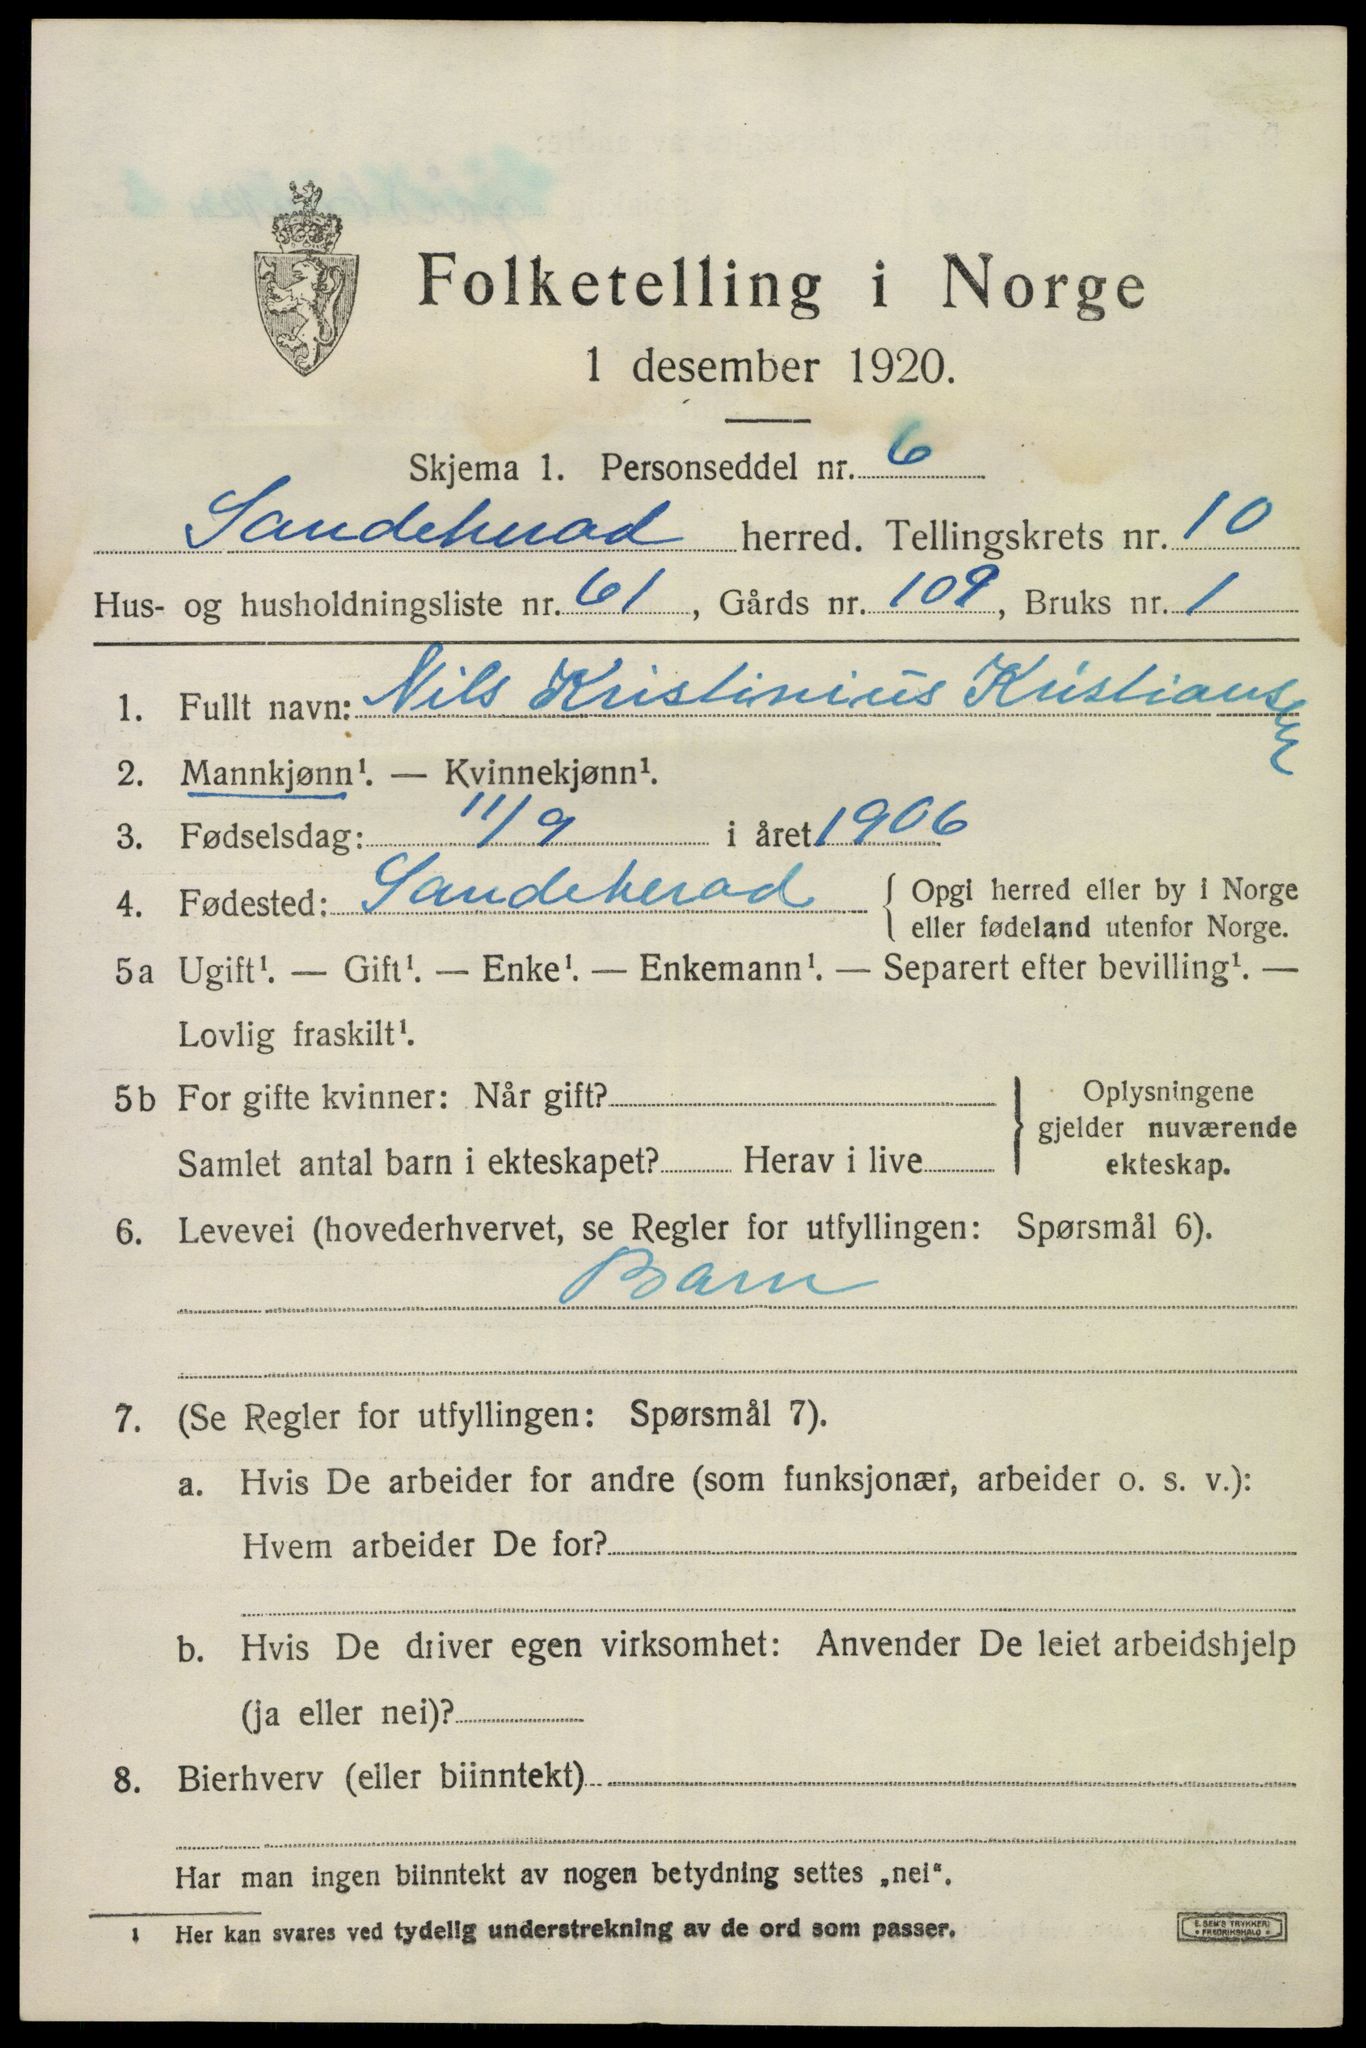 Folketelling i Norge
1 desember 1920.
Skjema 1. Personseddel nr. 6
Sandeherad herred. Tellingskrets nr. 10
Hus- og husholdningsliste nr. 61, Gårds nr. 109, Bruks nr. 1
1. Fullt navn: Nils Kristinius Kristiansen
2. Mannkjønn¹. — Kvinnekjønn¹.
3. Fødselsdag: 11/9 i året 1906
4. Fødested: Sandeherad { Opgi herred eller by i Norge
eller fødeland utenfor Norge.
5a Ugift¹. — Gift¹. — Enke¹. — Enkemann¹. — Separert efter bevilling¹. —
Lovlig fraskilt¹.
5b For gifte kvinner: Når gift? } Oplysningene
gjelder nuværende
Samlet antal barn i ekteskapet? Herav i live ekteskap.
6. Levevei (hovederhvervet, se Regler for utfyllingen: Spørsmål 6).
Barn
7. (Se Regler for utfyllingen: Spørsmål 7).
a. Hvis De arbeider for andre (som funksjonær, arbeider o. s. v.):
Hvem arbeider De for?
b. Hvis De driver egen virksomhet: Anvender De leiet arbeidshjelp
(ja eller nei)?
8. Bierhverv (eller biinntekt)
Har man ingen biinntekt av nogen betydning settes „nei“.
1 Her kan svares ved tydelig understrekning av de ord som passer.
E. SEM'S TRYKKERI
* FREDRIKSHALD *